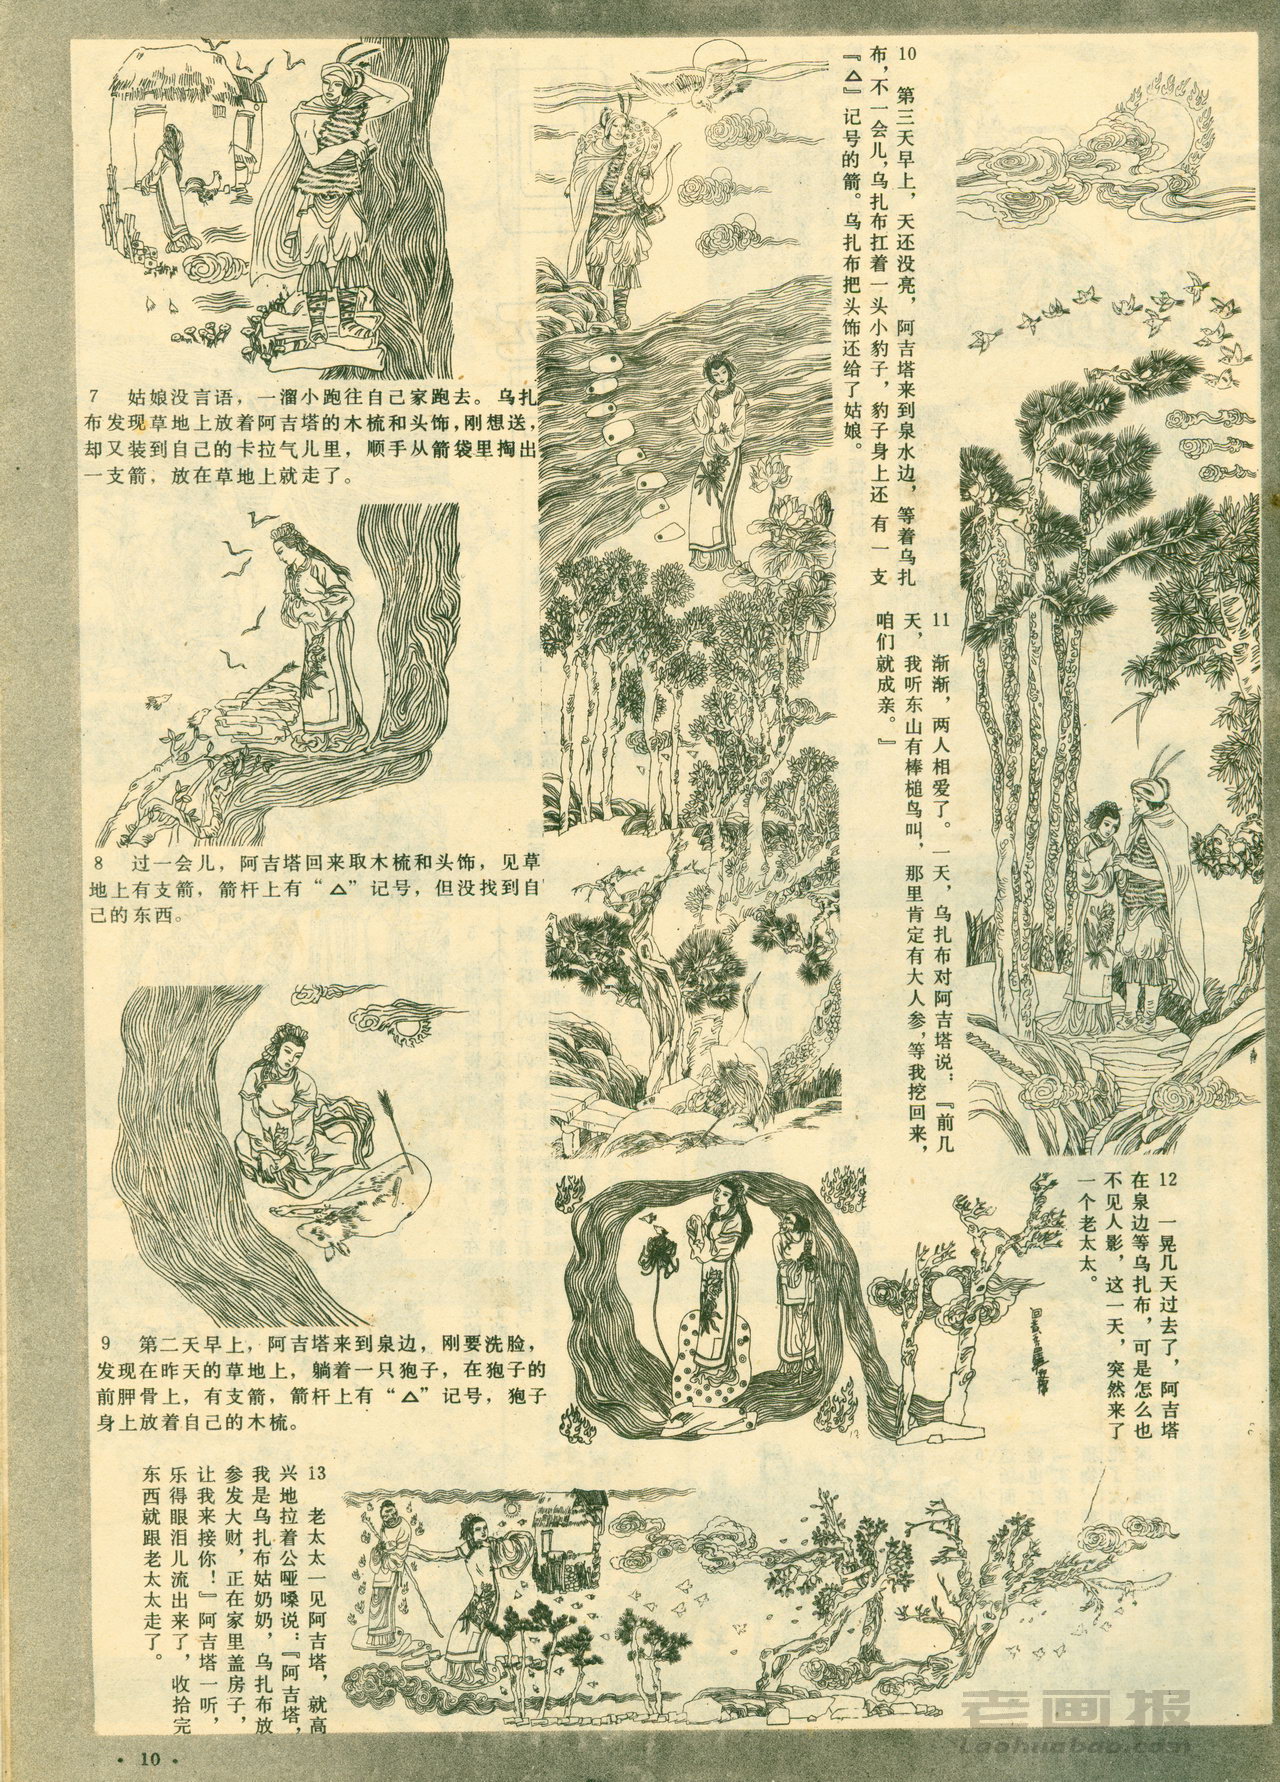 7　姑娘没言语，一溜小跑往自己家跑去。乌扎
布发现草地上放着阿吉塔的木梳和头饰，刚想送，
却又装到自己的卡拉气儿里，顺手从箭袋里掏出
一支箭，放在草地上就走了。
8　过一会儿，阿吉塔回来取木梳和头饰，见草
地上有支箭，箭杆上有“△”记号，但没找到自
己的东西。
9　第二天早上，阿吉塔来到泉边，刚要洗脸，
发现在昨天的草地上，躺着一只狍子，在狍子的
前胛骨上，有支箭，箭杆上有“△”记号，狍子
身上放着自己的木梳。
10　第三天早上，天还没亮，阿吉塔来到泉水边，等着乌扎
布，不一会儿，乌扎布扛着一头小豹子，豹子身上还有一支
『△』记号的箭。乌扎布把头饰还给了姑娘。
11　渐渐，两人相爱了。一天，乌扎布对阿吉塔说：『前几
天，我听东山有棒槌鸟叫，那里肯定有大人参，等我挖回来，
咱们就成亲。』
12　一晃几天过去了，阿吉塔
在泉边等乌扎布，可是怎么也
不见人影，这一天，突然来了
一个老太太。
13　老太太一见阿吉塔，就高
兴地拉着公哑嗓说：『阿吉塔，
我是乌扎布姑奶奶，乌扎布放
参发大财，正在家里盖房子，
让我来接你！』阿吉塔一听，
乐得眼泪儿流出来了，收拾完
东西就跟老太太走了。
· 10 ·
老画报
Laohuabao.com